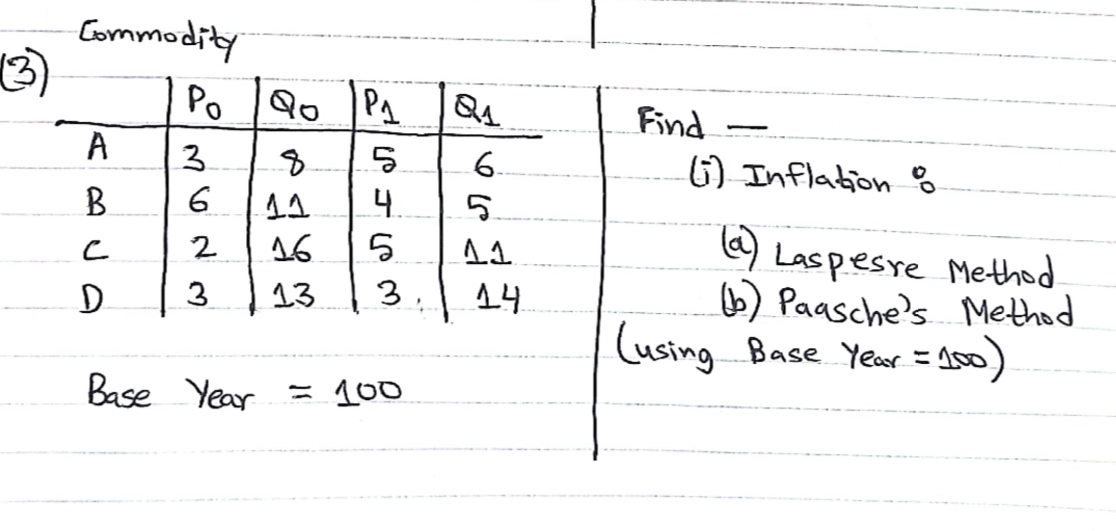 Commodity
(3)
P0 Q0 P1 Q1
A 3 8 5 6
B 6 11 4 5
C 2 16 5 11
D 3 13 3 14
Base Year = 100
Find —
(i) Inflation %
(a) Laspesre Method
(b) Paasche's Method
(using Base Year = 100)